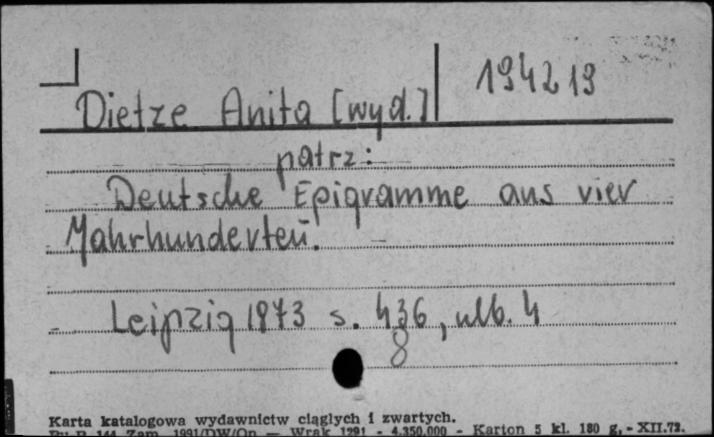 194219
Dietze Anita [wyd.]
patrz:
Deutsche Epigramme aus vier
Jahrhunderten.
Leipzig 1973 s. 436, nlb. 4
8
Karta katalogowa wydawnictw ciągłych i zwartych.
Zam. 1991/DW/Op — Wrak 1291 - 4.350.000 - Karton 5 kl. 180 g. - XII.72.